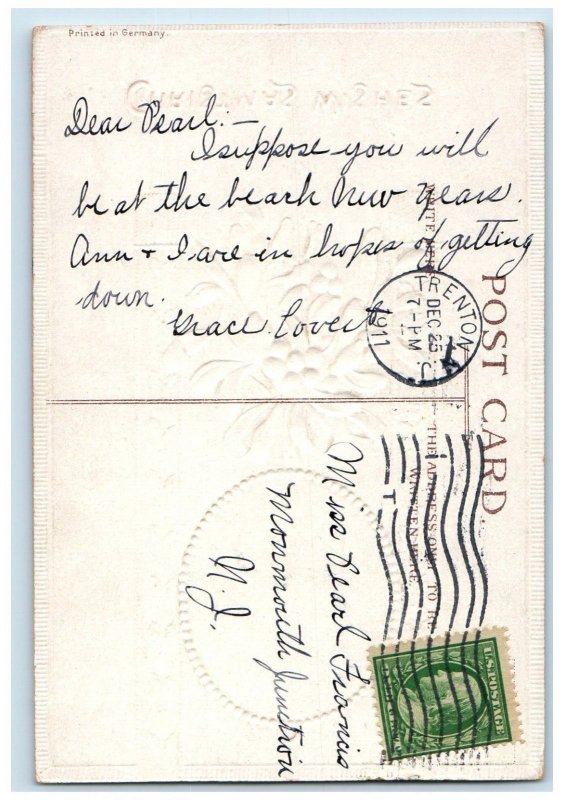 Printed in Germany.
Dear Pearl:—
I suppose you will
be at the beach New Years.
Ann + I are in hopes of getting
down.
Grace
POST CARD
WRITE HERE
THE ADDRESS ONLY TO BE
WRITTEN HERE.
TRENTON
N.J.
DEC 25
7-PM
1911
Miss Pearl Francis
Monmouth Junction
N.J.
U.S. POSTAGE